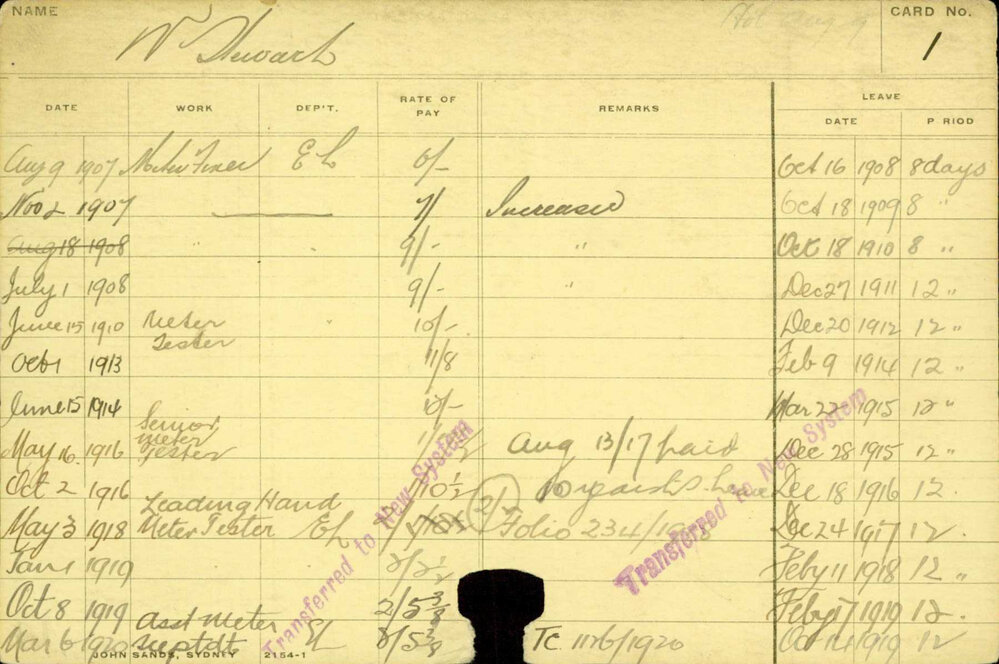 NAME
CARD No.
1
W Stewart
DATE WORK DEP'T. RATE OF PAY REMARKS LEAVE
DATE P RIOD
Aug 9 1907 Meter Fixer E L 6/- Oct 16 1908 8 days
Nov 2 1907 7/ Increased Oct 18 1909 8 "
Aug 18 1908 9/- " Oct 18 1910 8 "
July 1 1908 9/- " Dec 27 1911 12 "
June 15 1910 Meter Tester 10/- Dec 20 1912 12 "
Oct 1 1913 11/8 Feb 9 1914 12 "
June 15 1914 Mar 22 1915 12 "
May 16 1916 Senior Meter Tester Aug 13/17 paid Dec 28 1915 12 "
Oct 2 1916 Dec 18 1916 12
May 3 1918 Leading Hand Meter Tester EL Folio 234/1918 Dec 24 1917 12
Jan 1 1919 Feby 11 1918 12 "
Oct 8 1919 2/5 3/8 Feby 17 1919 12
Mar 6 1920 Asst Meter EL Tc 1176/1920 Oct 14 1919 12
Transferred to New System
Transferred to New System
JOHN SANDS, SYDNEY 2154-1